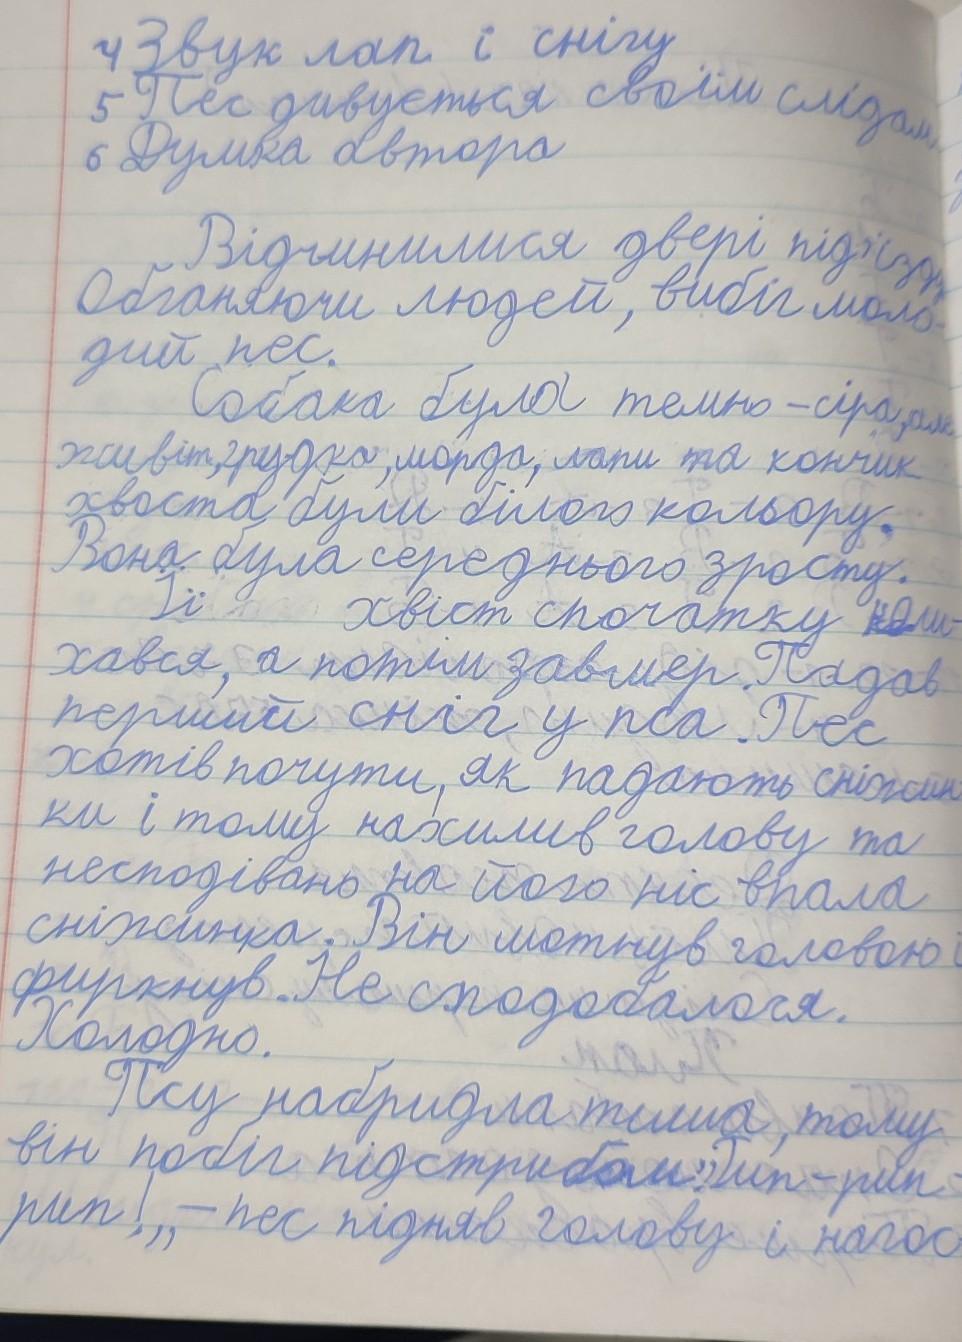 4 Звук лап і снігу
5 Пес дивується своїм слідам
6 Думка автора
Відчинилися двері під'їзду
Обганяючи людей, вибіг моло-
дий пес.
Собака була темно-сіра, але
живіт, грудка, морда, лапи та кончик
хвоста були білого кольору.
Вона була середнього зросту.
Її хвіст спочатку коли-
хався, а потім завмер. Падав
перший сніг у пса. Пес
хотів почути, як падають сніжин
ки і тому нахилив голову та
несподівано на його ніс впала
сніжинка. Він мотнув головою і
фиркнув. Не сподобалося.
Холодно.
Псу набридла тиша, тому
він побіг підстрибом. „Рип-рип-
рип!„ – пес підняв голову і нагос